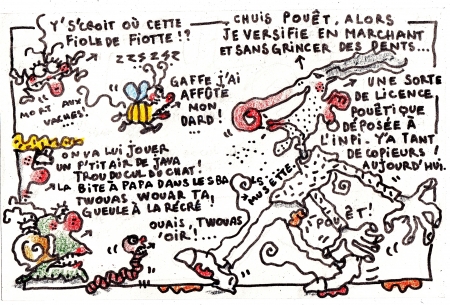 Y' S'CROIT OÙ CETTE
FIOLE DE FIOTTE !?
MORT AUX
VACHES !
ZZSZZZ
GAFFE J'AI
AFFÛTÉ
MON
DARD !
CHUIS POUÊT, ALORS
JE VERSIFIE EN MARCHANT
ET SANS GRINCER DES DENTS...
UNE SORTE
DE LICENCE
POUÊTIQUE
DÉPOSÉE À
L'INPI. Y'A TANT
DE COPIEURS !
AUJOURD'HUI.
ON VA LUI JOUER
UN P'TIT AIR DE JAVA
TROU DU CUL DU CHAT !
LA BITE À PAPA DANS LES BA
TWOUAS, WOUAR TA
GUEULE À LA RÉCRÉ
OUAIS, TWOUAS
'OIR...
POUÊT !